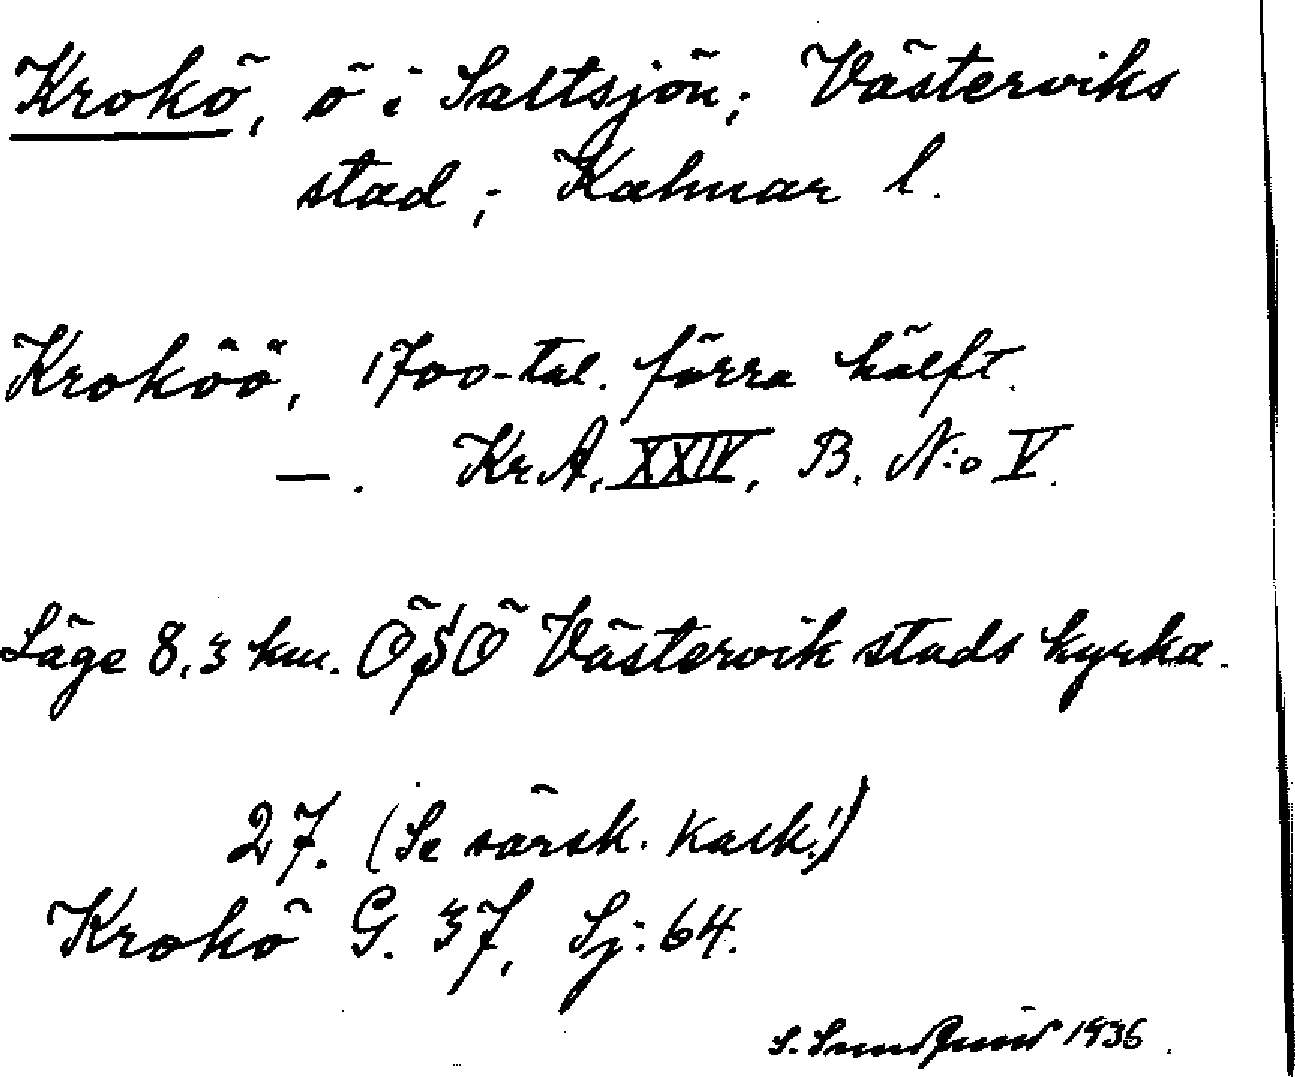 Krokö, ö i Saltsjön; Västerviks
stad; Kalmar l.
Kroköö, 1700-tal. förra hälft.
—. Kr.A. XXIV, B. N:o V.
Läge 8,3 km. ÖSÖ Västervik stads kyrka.
27. (Se särsk. kalk!)
Krokö G. 37, Sj: 64.
S. 1936.